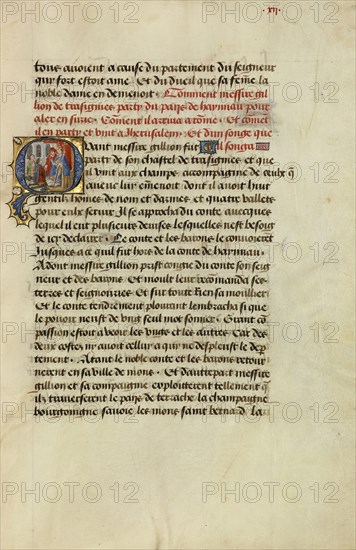 ·xij·
tous avoient a cause du partement du seigneur
qui fort estoit ame Et du dueil que sa femme la
noble dame en demenoit Comment messire gil
lion de trasignies party du pays de haynnau pour
aler en surie Comment il arriva a romme Et coment
il en party et vint a Jherusalem Et d'un songe que
Quant messire gillion fut il songa
party de son chastel de trasignies et que
il vint aux champs accompaigne de ceulx q̃
avec luy emmenoit dont il avoit huit
gentilz homes de nom et darmes et quatre valletz
pour eulx servir Il se aprocha du conte avecques
lequel il eut plusieurs devises lesquelles nest besoing
de icy declairer Le conte et les barons le convoierent
jusques a ce qu'il fut hors de la conte de haynnau
Adont messire gillion prist congie du conte son seig
neur et des barons Et moult leur recomanda ses
terres et seignouries Et sur tout sa moullier
Et le conte tendrement plourant lembracha si que
le povoir neust de ung seul mot sonner Grant com
passion estoit a veoir les ungs et les autres Car des
deux costez ny avoit cellui a qui ne despleust le dep
tement Atant le noble conte et les barons retour
nerent en sa ville de mons Et d'autre part messire
gillion et sa compaignie exploitterent tellement q̃
ilz traverserent le pays de terrache la champaigne
bourgoingne savoie les mons saint bernard la